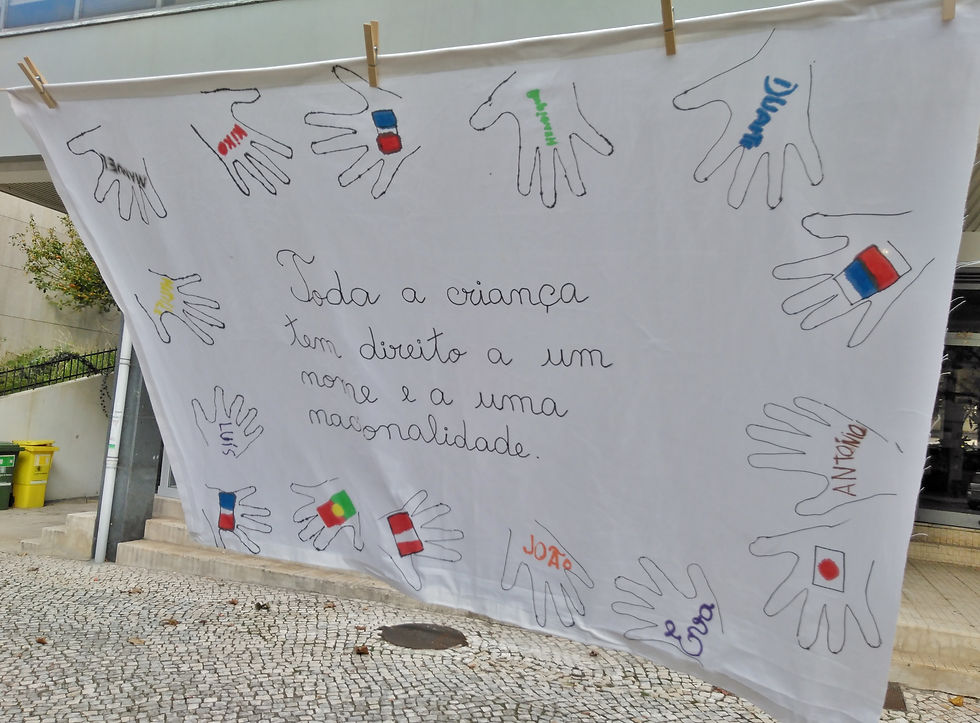 Henrique
Duarte
Toda a criança
tem direito a um
nome e a uma
nacionalidade.
LUÍS
ANTÓNIO
JOÃO
Eva